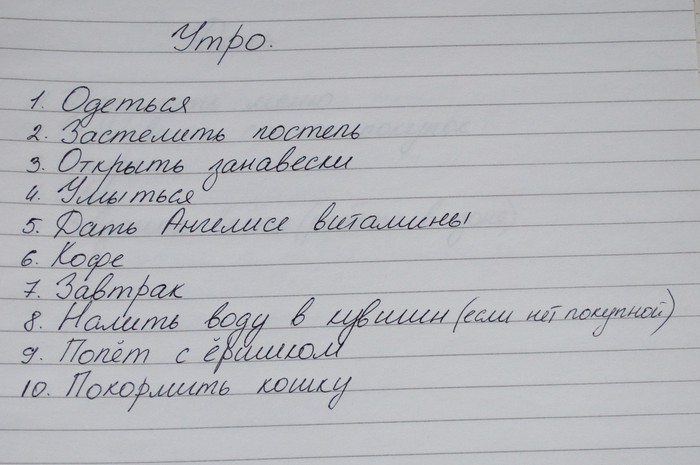 Утро.
1. Одеться
2. Застелить постель
3. Открыть занавески
4. Умыться
5. Дать Ангелисе витамины
6. Кофе
7. Завтрак
8. Налить воду в кувшин (если нет покупной)
9. Попёт с ёршиком
10. Покормить кошку